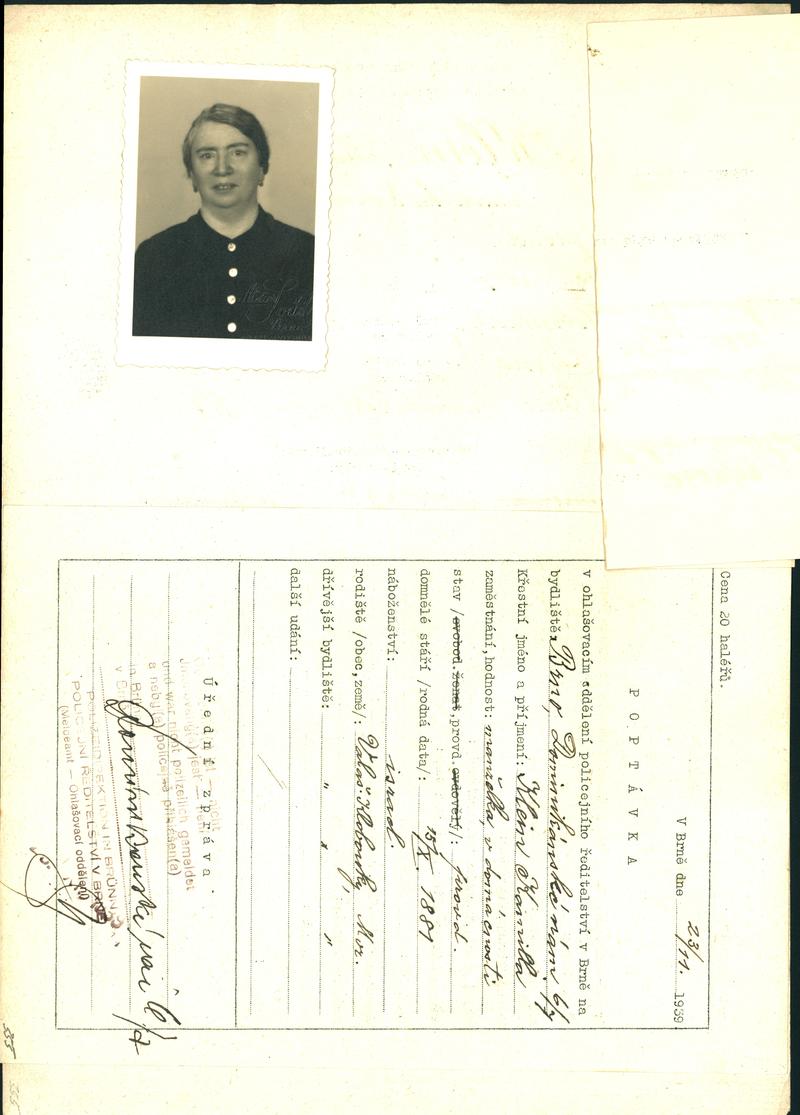 Cena 20 haléřů.
V Brně dne 23/11. 1939
POPTÁVKA
v ohlašovacím oddělení policejního ředitelství v Brně na
bydliště: Brno, Dominikánské nám 6/7
Křestní jméno a příjmení: Klein Kamilla
zaměstnání, hodnost: manželka v domácnosti
stav /svobod. ženat, provd. ovdověly/: provd.
domnělé stáří /rodná data/: 15/X. 1881
náboženství: israel.
rodiště /obec, země/: Valaš. Klobouky, Mor.
dřívější bydliště: " " "
další udání:
Úřední zpráva.
nicht
und war nicht polizeilich gemeldet
a nebyl(a) policejně přihlášen(a)
POLIZEIDIREKTION IN BRÜNN
POLICEJNÍ ŘEDITELSTVÍ V BRNĚ
(Meldeamt — Ohlašovací oddělení)
Atelier
Brno